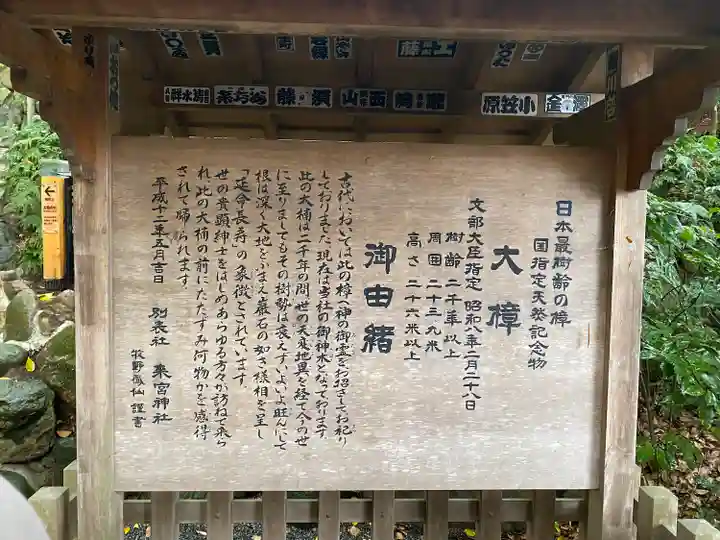 日本最樹齢の樟
国指定天然記念物
大樟
文部大臣指定 昭和八年二月二十八日
樹齢 二千年以上
周囲 二十三、九米
高さ 二十六米以上
御由緒
古代においては此の樟へ神の御霊をお招きしてお祀り
しておりました現在は当社の御神木となっております
此の大楠は二千年の間世の天変地異を経て今の世
に至りましてもその樹勢は衰えずいよいよ旺んにして
根は深く大地をふまえ巌石の如き様相を呈し
「延命長寿」の象徴とされています
世の貴顕紳士をはじめあらゆる方々が訪ねて来ら
れ此の大楠の前にたたずみ何物かを感得
されて帰られます。
平成十二年五月吉日 別表社 来宮神社
牧野 仙 謹書
小笠原
西山
須藤